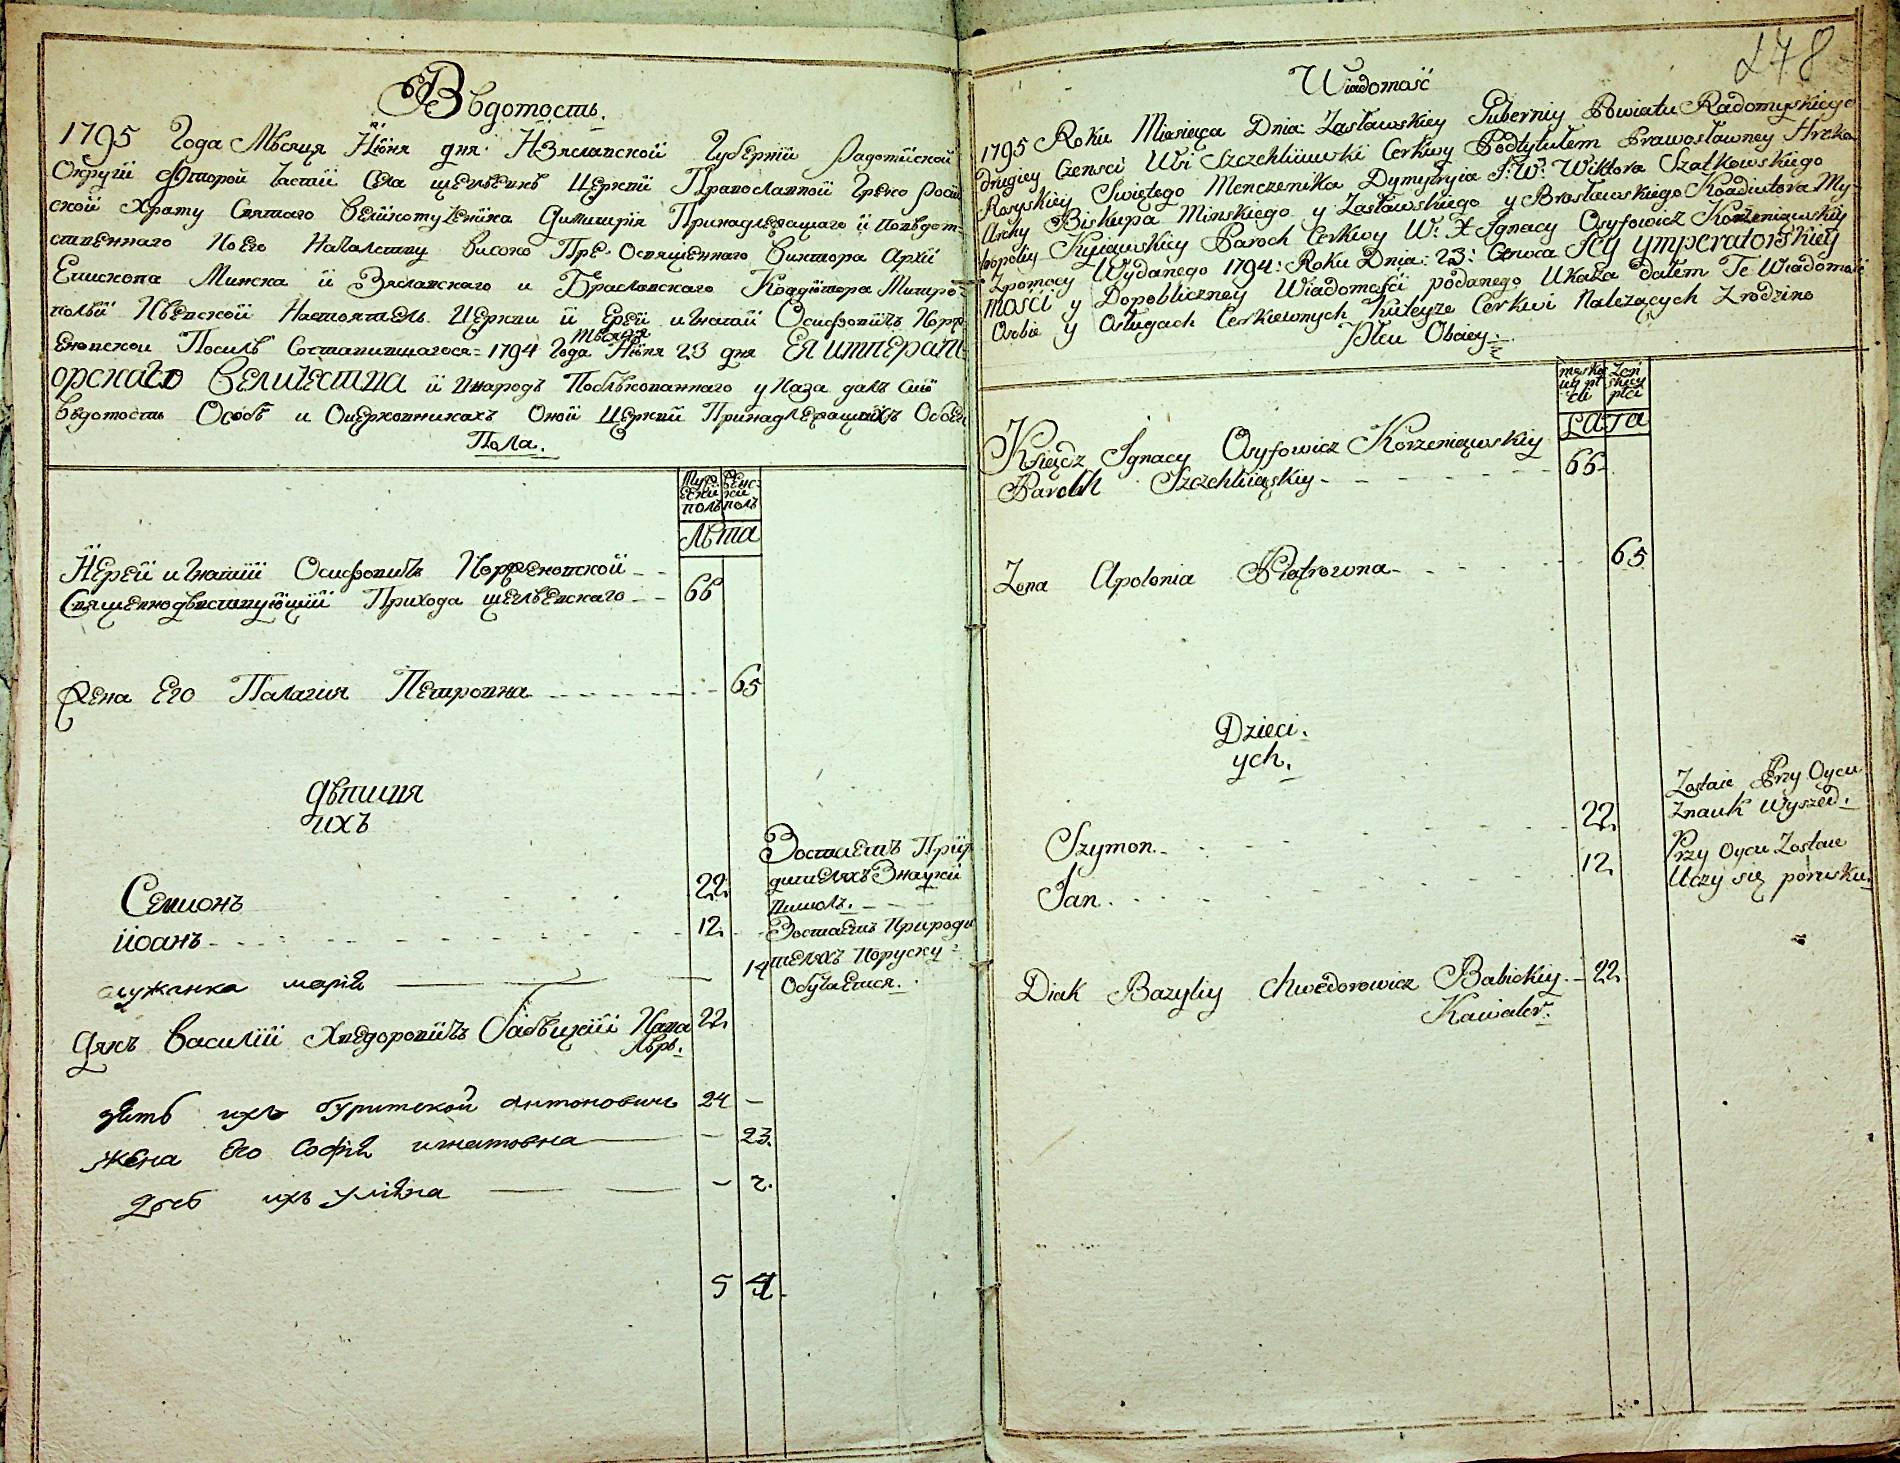 Вѣдомость.
1795 Года Мѣсяца Іюня дня: Изяславской Губерніи Радомиской
Округи Второй Части Села Щегліевки Церкви Православной Греко Росій
ской Храму Святаго Великомученика Димитрія Принадлежащаго и подвѣдом-
ственнаго По его Началству Високо Пре-Освященнаго Виктора Архіи
Епископа Минска и Зяславскаго и Браславскаго Коадютора Митро-
поліи Кіевской Настоятель Церкви и Ерей Игнатій Осифовичъ Корж
еновской Посилѣ Состоявшагося: 1794 Года Мѣсяца Іюня 23 дня Ея Императ
орскаго Величества и Внародъ Публѣкованнаго указа далъ Сию
Вѣдомость Особѣ и Оцерковникахъ Оной Церкви Принадлежащихъ Обоего
Пола.
Муже Женс-
ский кий
полъ полъ
Лѣта
Іерей Игнатій Осифовичъ Корженовской
Священнодѣйствующій Прихода Щеглѣевскаго 66
Жена Его Палагия Петровна 65
Дѣтия
ихъ
Семионъ 22. Зостаетъ При ро
дителяхъ Знауки
пишолъ.
Іоанъ 12. Зостаетъ Природи
теляхъ Поруску
Обучается.
служанка марія 14
Дякъ Василій Хведоровичъ Бабѣцкій Кава 22.
лѣръ.
зять ихъ Гуритской Антоновичъ 24 –
жена Его Софія игнатовна – 23.
дочь ихъ улияна – 2.
5 4.
278
Wiadomość
1795 Roku Miesiąca Dnia: Zasławskiey Guberniy Powiatu Radomyskiego
drugiey Czensci Wsi Szczehliiuwki Cerkwy Podtytułem Prawosławney Hreka
Rosyskiey Swiętego Menczenika Dymytryia J: W: Wiktora Szatkowskiego
Archy Biskupa Minskiego y Zasławskiego y Brosławskiego Koadiutora My-
tropoliy Kyiąwskiey Paroch Cerkwy W: X Jgnacy Osyfowicz Korzeniąwskiy
Zpomocy Wydanego 1794: Roku Dnia: 23: Czerwca Jey Ymperatorskiey
mości y Dopobliczney Wiadomości podanego Ukaza Dałem Te Wiadomość
Osobie y Osługach Cerkiewnych Kuteyze Cerkwi Nalezących Zrodzino
Płeu Obaiey.
męskę Zeń
uiy pł skiey
ci płci
LATA
Ksiądz Jgnacy Osyfowicz Korzeniąwskiy
Paroch Szczehliiąskiy 66
Zona Apolonia Piątrowna 65
Dzieci.
ych.
Szymon. 22. Zostaie Przy Oycu
Znauk Wyszed.
Jan. 12. Przy Oycu Zostaie
Uczy się porusku.
Diak Bazyliy Chwedorowicz Babickiy 22.
Kawaler.